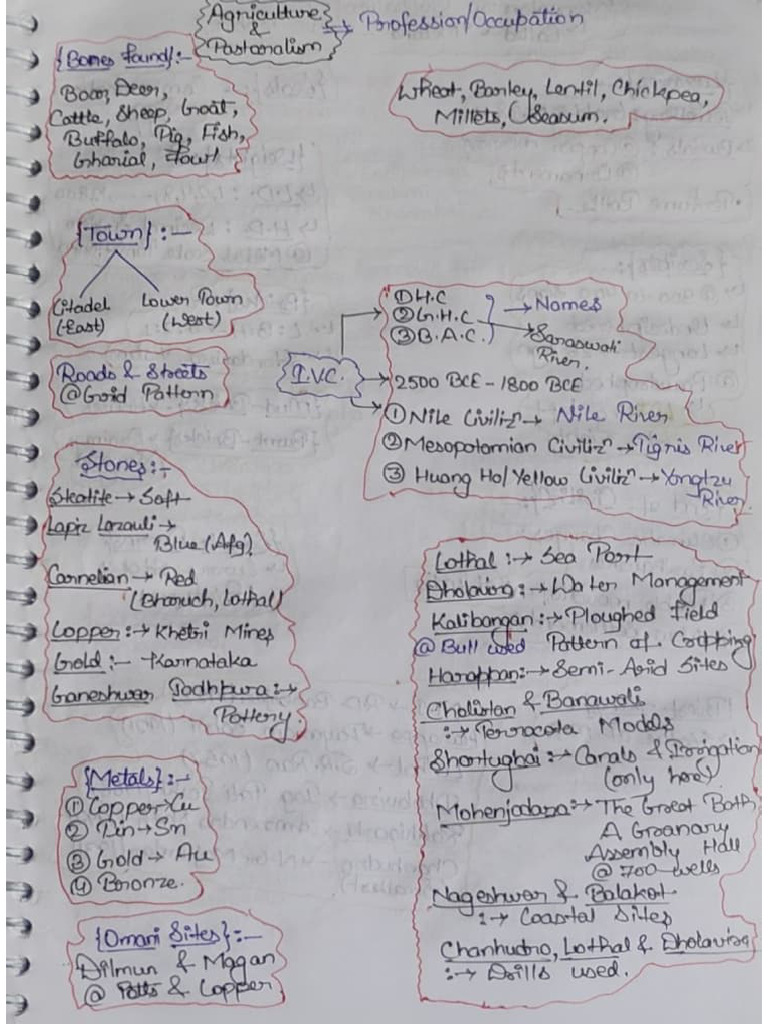 Agriculture
& → Profession/Occupation
Pastoralism
{Bones found}:-
Boar, Deer,
Cattle, Sheep, Goat,
Buffalo, Pig, Fish,
Gharial, Fowl
Wheat, Barley, Lentil, Chickpea,
Millets, Seasum.
{Town}:-
Citadel Lower Town
(East) (West)
Roads & Streets
@Grid Pattern
I.V.C.
① H.C
② G.H.C → Names
③ B.A.C. → Saraswati
River.
→ 2500 BCE - 1800 BCE
① Nile Civilizⁿ → Nile River
② Mesopotomian Civilizⁿ → Tigris River
③ Huang Ho/Yellow Civilizⁿ → Yongtzu
River.
Stones:-
Steatite → Soft
Lapiz Lazauli →
Blue (Afg)
Carnelian → Red
(Bharuch, Lothal)
Copper:→ Khetri Mines
Gold:- Karnataka
Ganeshwar Jodhpura:→
Pottery
{Metals}:-
① Copper → Cu
② Tin → Sn
③ Gold → Au
④ Bronze.
{Omani Sites}:-
Dilmun & Magan
@ Potts & Copper
Lothal:→ Sea Port
Dholavira:→ Water Management
Kalibangan:→ Ploughed field
@ Bull used Pattern of Cropping
Harappan:→ Semi-Arid Sites
Cholistan & Banawali
:→ Terracota Models
Shortughai:→ Canals & Irrigation
(only here)
Mohenjadaro:→ The Great Bath
A Granary
Assembly Hall
@ 700 wells
Nageshwar & Balakot
:→ Coastal Sites
Chanhudro, Lothal & Dholavira
:→ Drills used.